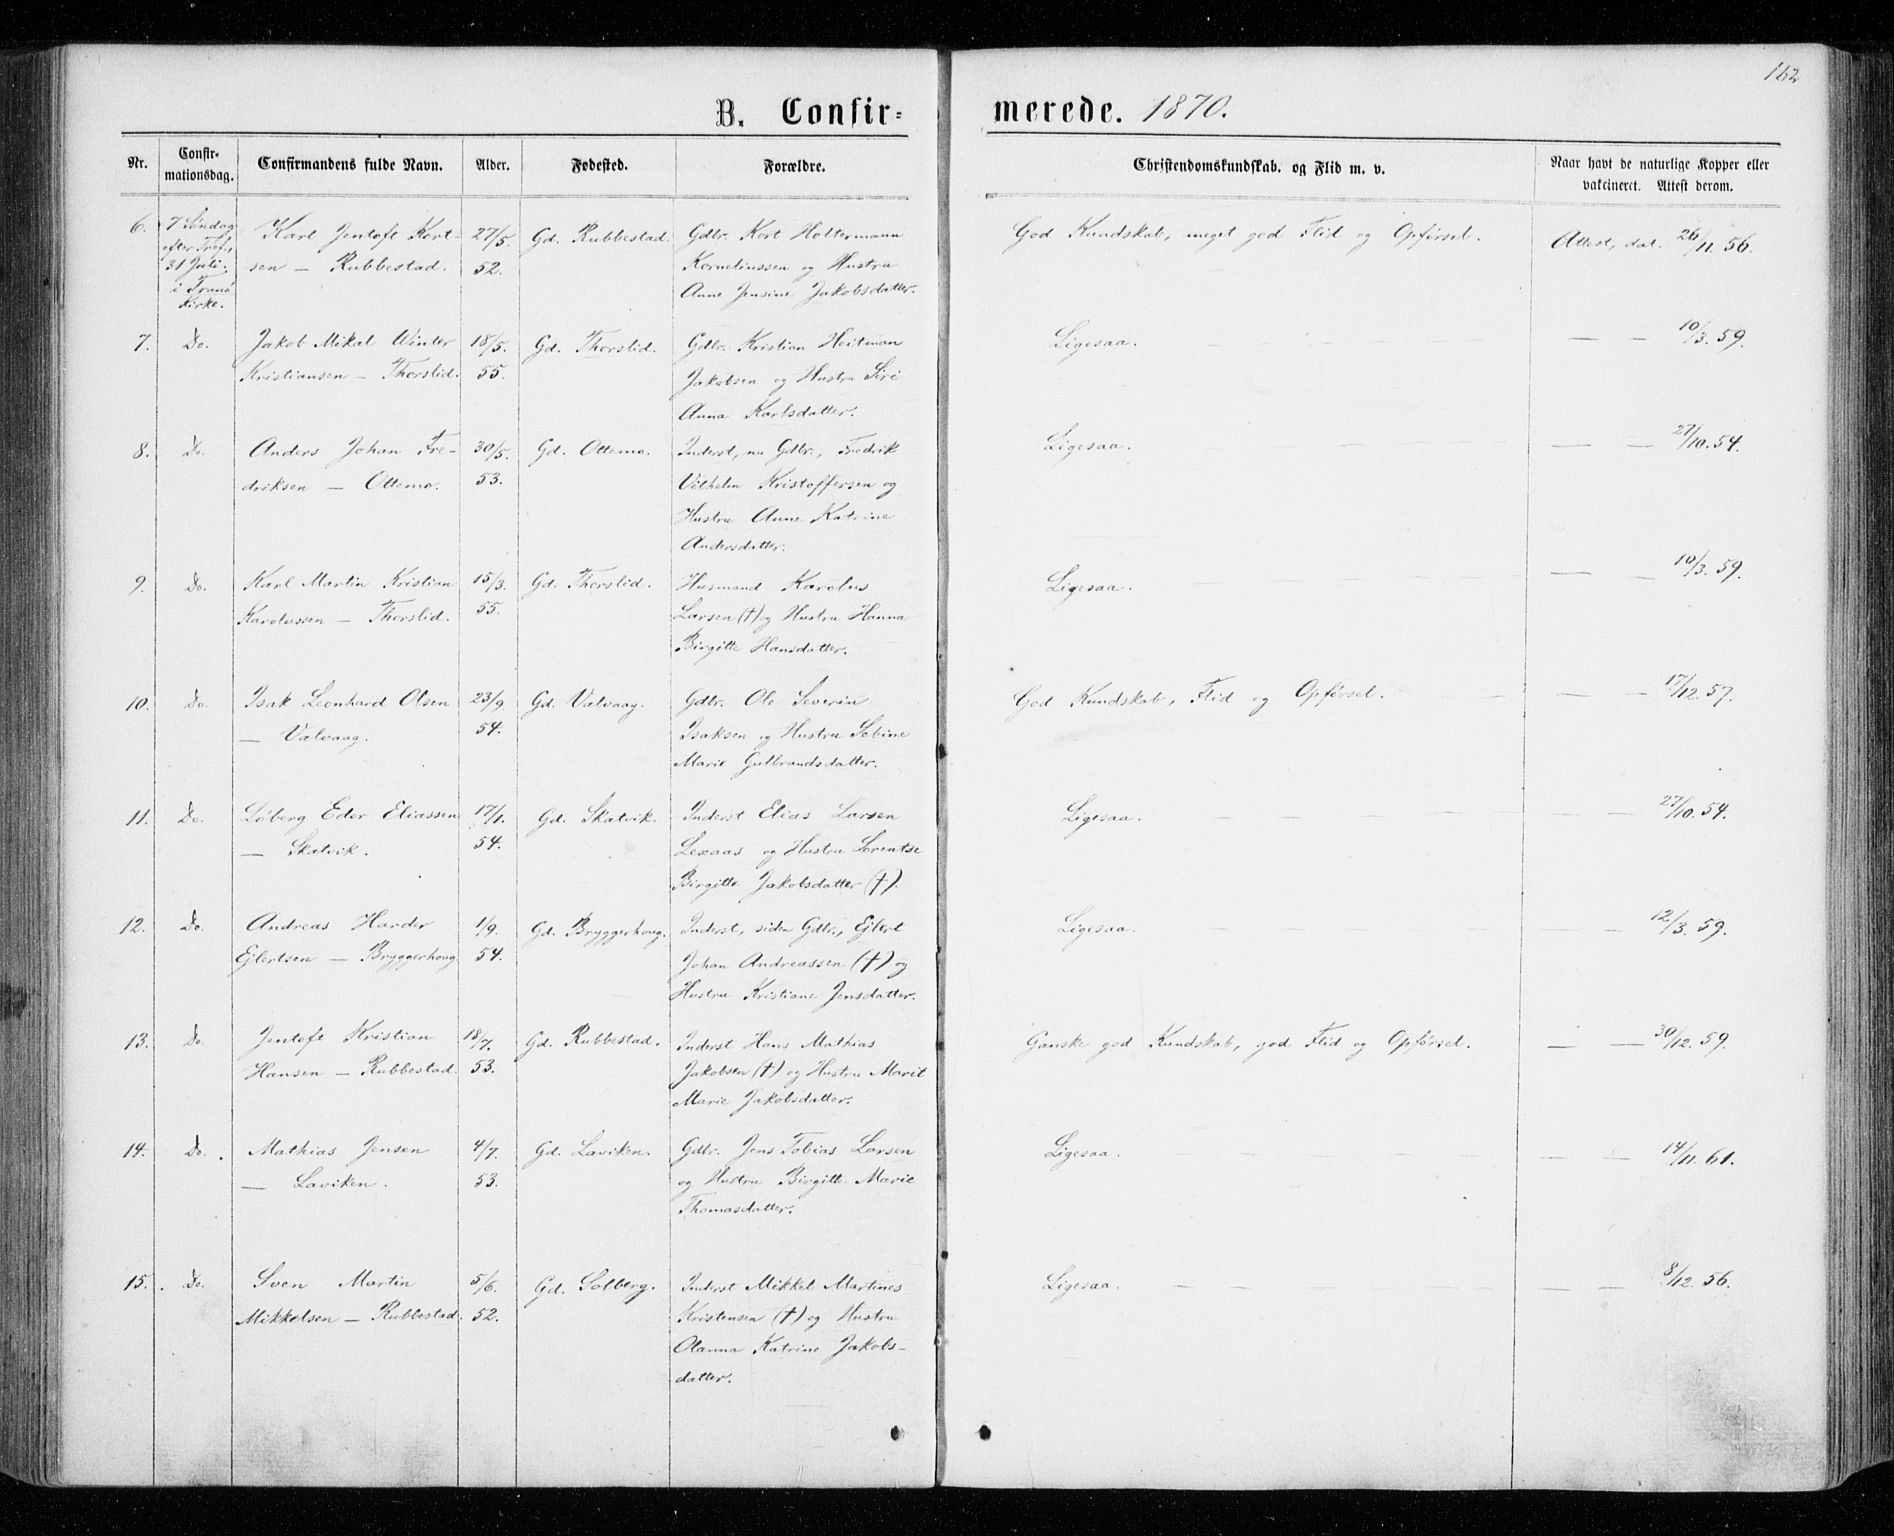 162
B. Confir-merede. 1870.
Nr. Confir-mationsdag. Confirmandens fulde Navn. Alder. Fødested. Forældre. Christendomskundskab. og Flid m. v. Naar havt de naturlige Kopper eller vakcineret. Attest derom.
6. 7 Søndag Karl Jentoft Kort- 27/5. Gd. Rubbestad. Gdbr. Kort Holtermann God Kundskab, meget god Flid og Opførsel. Attest, dat. 26/11. 56.
efter Tref., 31 Juli, sen — Rubbestad. 52. Korneliussen og Hustru
i Tranø Kirke. Anne Jensine Jakobsdatter.
7. Do. Jakob Mikal Winter 18/5. Gd. Thorslid. Gdbr. Kristian Heitman Ligesaa. — — 10/3. 59.
Kristiansen — Thorslid. 55. Jakobsen og Hustru Siri
Anna Karlsdatter.
8. Do. Anders Johan Fre- 30/5. Gd. Ottemo. Inderst, nu Gdbr., Fredrik Ligesaa. — — 27/10. 54.
driksen — Ottemo. 53. Vilhelm Kristoffersen og
Hustru Anne Katrine
Andersdatter.
9. Do. Karl Martin Kristian 15/3. Gd. Thorslid. Husmand Karolus Ligesaa. — — 10/3. 59.
Karolussen — Thorslid. 55. Larsen (†) og Hustru Hanna
Birgitte Hansdatter.
10. Do. Isak Leonhard Olsen 23/9 Gd. Valvaag. Gdbr. Ole Severin God Kundskab, Flid og Opførsel. — — 17/12. 57.
— Valvaag. 54. Isaksen og Hustru Sebine
Marie Gulbrandsdatter.
11. Do. Løberg Eder Eliassen 17/1. Gd. Skatvik. Inderst Elias Larsen Ligesaa. — — 27/10. 54.
— Skatvik. 54. Lexaas og Hustru Lorentse
Birgitte Jakobsdatter (†).
12. Do. Andreas Harder 1/9. Gd. Bryggerhoug. Inderst, siden Gdbr., Ejlert Ligesaa. — 12/3. 59.
Ejlertsen — Bryggerhoug 54. Johan Andreassen (†) og
Hustru Kristiane Jensdatter.
13. Do. Jentoft Kristian 18/7. Gd. Rubbestad. Inderst Hans Mathias Ganske god Kundskab, god Flid og Opførsel. — — 30/12. 59.
Hansen — Rubbestad. 53. Jakobsen (†) og Hustru Marit
Marie Jakobsdatter.
14. Do. Mathias Jensen 4/7. Gd. Laviken. Gdbr. Jens Tobias Larsen Ligesaa. — — 14/11. 61.
— Laviken. 53. og Hustru Birgitte Marie
Thomasdatter.
15. Do. Sven Martin 5/6. Gd. Solberg. Inderst Mikkel Martines Ligesaa. — — 8/12. 56.
Mikkelsen — Rubbestad. 52. Kristensen (†) og Hustru
Olanna Katrine Jakobs-
datter.